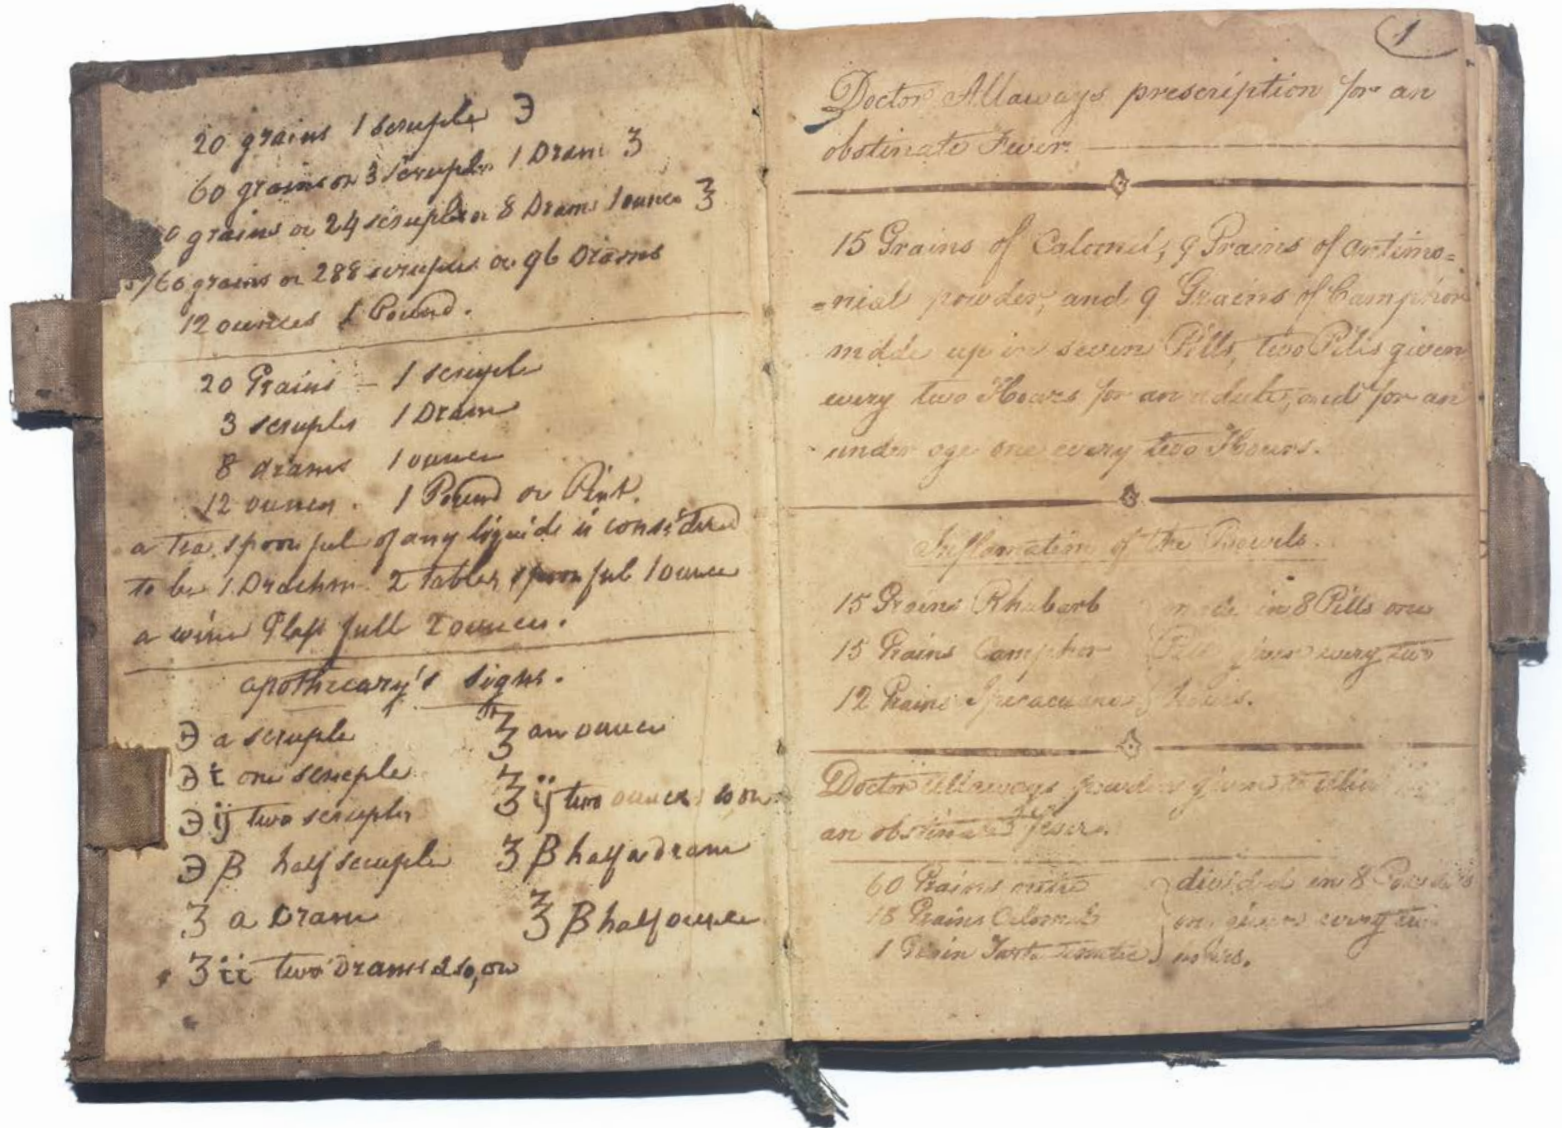 20 grains 1 scruple ℈
60 grains or 3 scruples 1 Dram ʒ
0 grains or 24 scruples or 8 Drams 1 ounce ℥
5760 grains or 288 scruples or 96 Drams
12 ounces 1 Pound.
20 Grains – 1 scruple
3 scruples 1 Dram
8 drams 1 ounce
12 ounces . 1 Pound or Pint.
a tea spoon full of any liquid is considered
to be 1 Drachm 2 tables spoon full 1 ounce
a wine Glass full 2 ounces.
apothecary's signs.
℈ a scruple
℈ i one scruple
℈ ij two scruples
℈ ß half scruple
ʒ a Dram
ʒ ii two drams & so, on
℥ an ounce
℥ ij two ounces so, on
ʒ ß half a dram
℥ ß half ounce
1
Doctor Allaways prescription for an
obstinate Fever
15 Grains of Calomel, 9 Grains of antimo=
=nial powder, and 9 Grains of Camphor
made up in seven Pills, two Pills given
every two Hours for an adult, and for an
under age one every two Hours.
Inflamation of the Bowels.
15 Grains Rhubarb
15 Grains Campher
12 Grains Ipecacuana
made in 8 Pills one
Pill given every two
hours.
Doctor Allaways powders given to
an obstinate fever.
60 Grains nitre
18 Grains Calomel
1 Grain Tarta emetic
divided in 8 Powders
one given every two
hours.